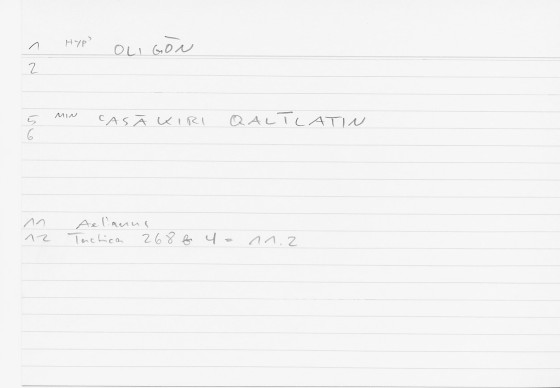 1 HYP' OLIGŌN
2
5 MIN ʿASĀKIRI QALĪLATIN
6
11 Aelianus
12 Tactica 268 4 = 11.2